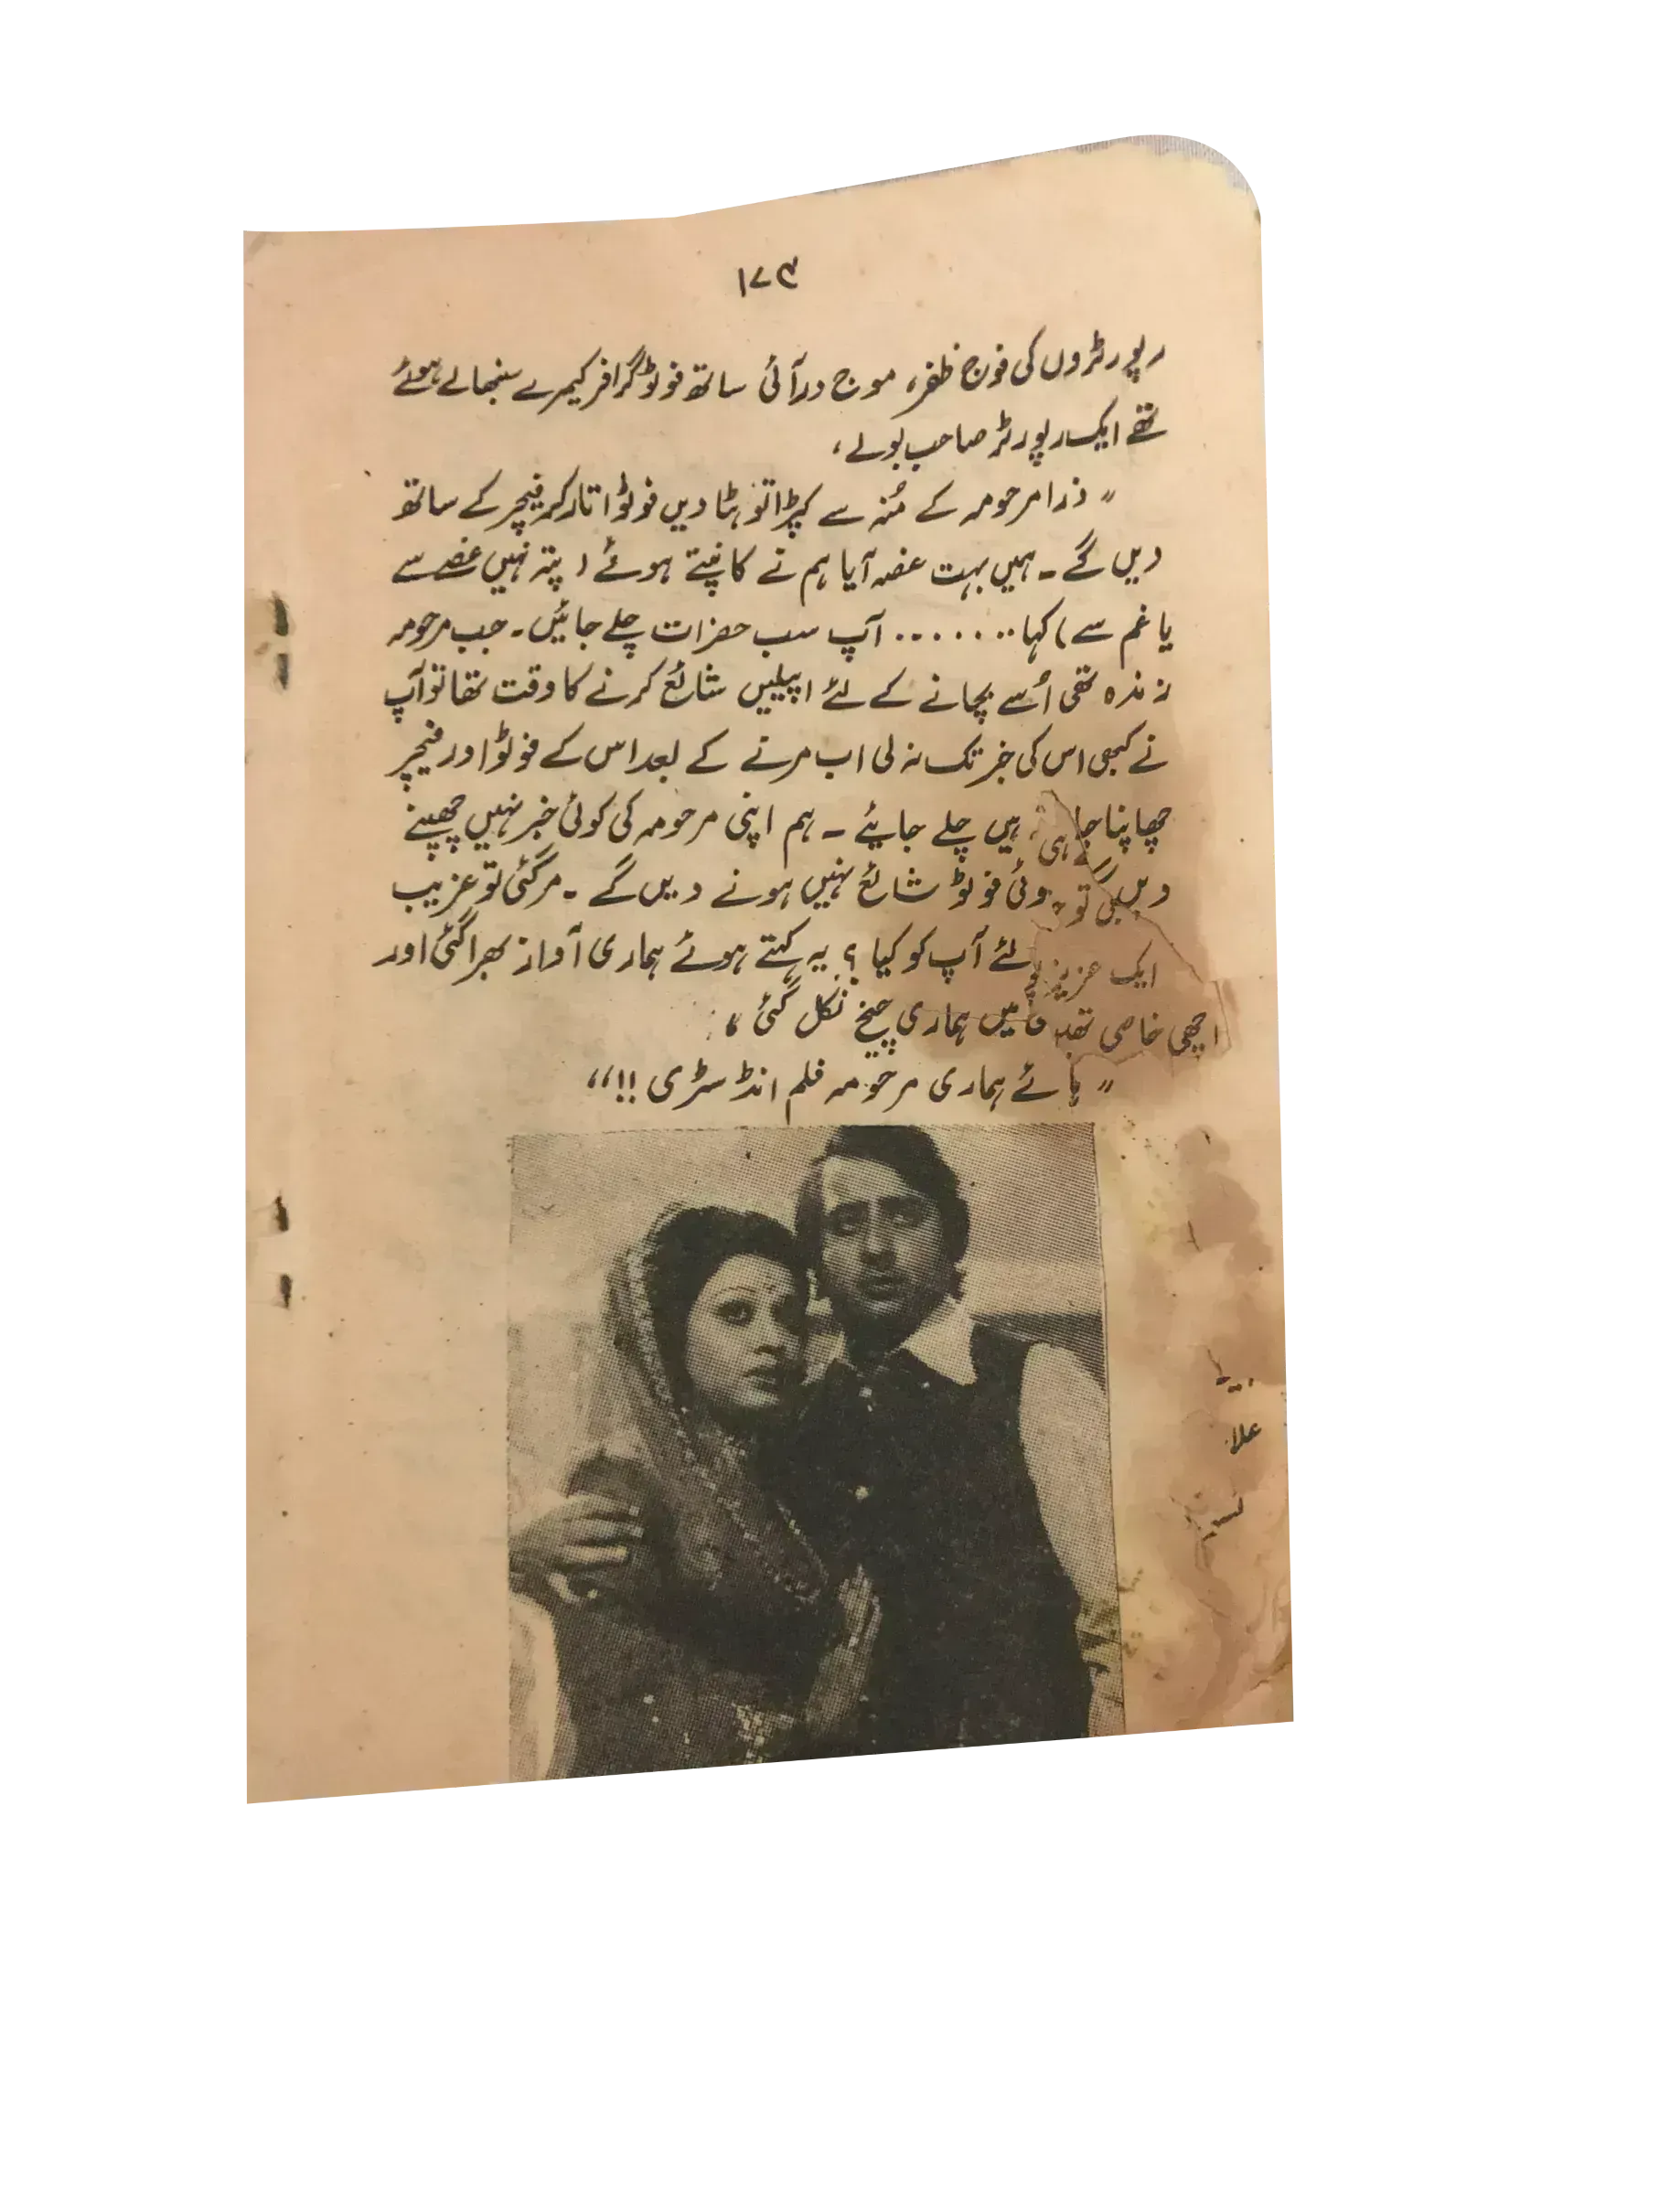 ۱۷۳
رپورٹروں کی فوج ظفر موج در آئی ساتھ فوٹوگرافر کیمرے سنبھالے ہوئے
تھے ایک رپورٹر صاحب بولے،
”ذرا مرحومہ کے مُنہ سے کپڑا تو ہٹا دیں فوٹو اتار کر فیچر کے ساتھ
دیں گے ۔ ہمیں بہت غصہ آیا ہم نے کانپتے ہوئے (پتہ نہیں غصے سے
یا غم سے) کہا ........ آپ سب حضرات چلے جائیں ۔ جب مرحومہ
زندہ تھی اُسے بچانے کے لئے اپیلیں شائع کرنے کا وقت تھا تو آپ
نے کبھی اس کی خبر تک نہ لی اب مرنے کے بعد اس کے فوٹو اور فیچر
چھاپنا ہیں چلے جایئے ۔ ہم اپنی مرحومہ کی کوئی خبر نہیں چھپنے
دیں فوٹو شائع نہیں ہونے دیں گے ۔ مر گئی تو غریب
ایک لئے آپ کو کیا ؟ یہ کہتے ہوئے ہماری آواز بھرا گئی اور
اچھی خاصی میں ہماری چیخ نکل گئی ،
”ہائے ہماری مرحومہ فلم انڈسٹری !!“
علا